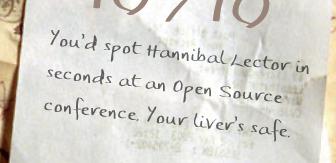 10/10
You'd spot Hannibal Lector in
seconds at an Open Source
conference. Your liver's safe.